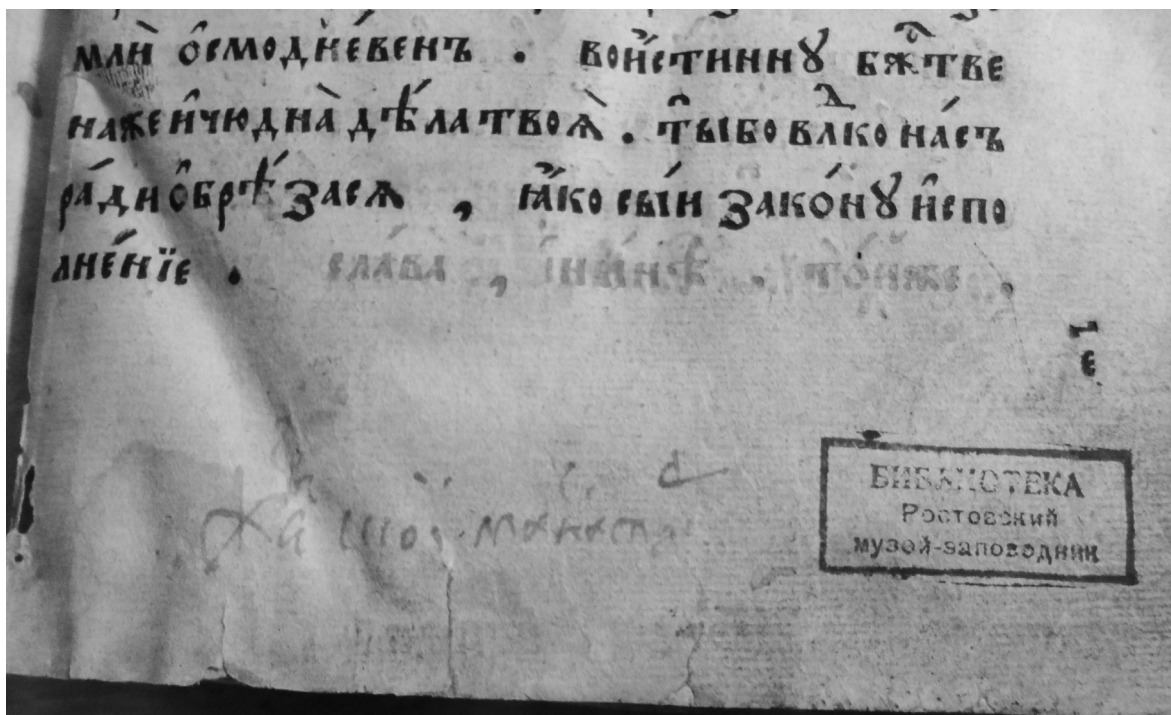 млй ѻ҆смоднéвенъ . вои́стиннꙋ бж҃тве
на же и҆ чюдна̀ дѣ́ла твоѧ̀ . ты̑ бо влⷣко на́съ
ра́ди ѻ҆брѣ́засѧ , ꙗ҆́ко сы́й зако́нꙋ и҆спо
лне́нїе . сла́ва , и҆ ны́нѣ . то́йже ,
е҃
БИБЛИОТЕКА
Ростовский
музей-заповедник